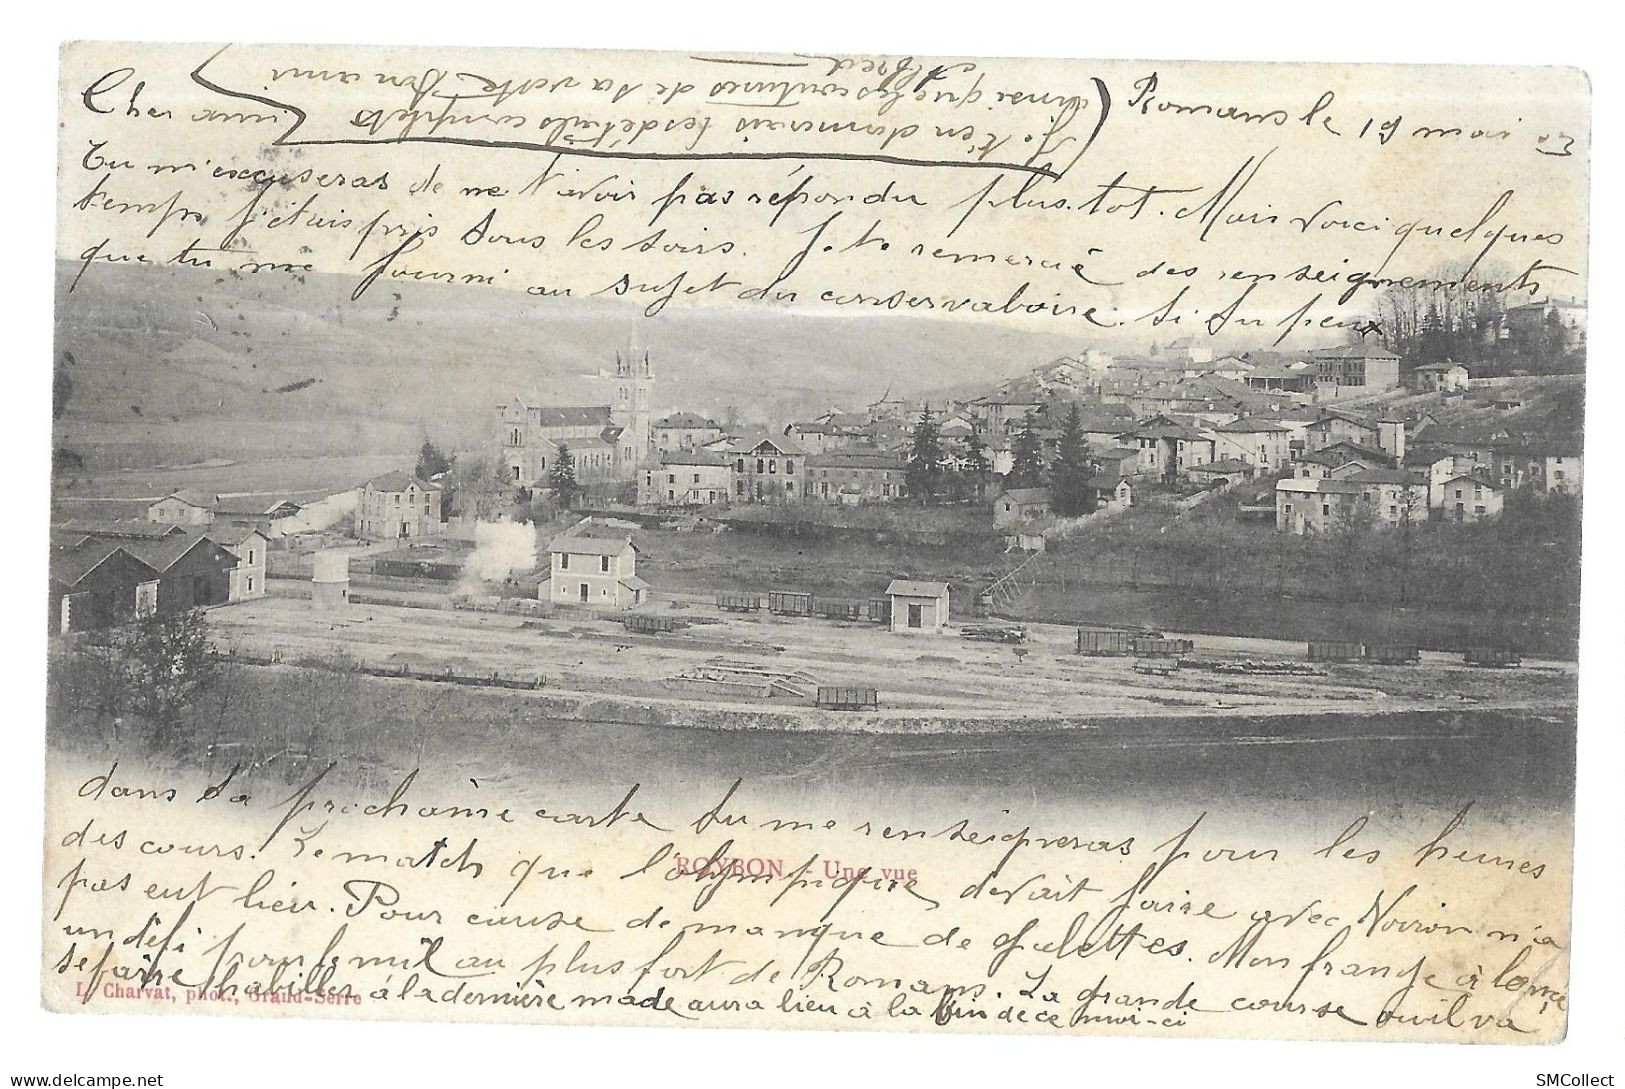 Romans le 19 mai 03
Cher ami
Tu m'excuseras de ne t'avoir pas répondu plus tot. Mais voici quelques
temps j'étais pris tous les soirs. Je te remercie des renseignements
que tu me fourni au sujet du conservatoire. Si tu peux
ROYBON - Une vue
dans ta prochaine carte tu me renseigneras pour les heures
des cours. Le match que l'olympique devait faire avec Voiron n'a
pas eut lieu. Pour cause de manque de galettes. Mon frange à lancé
un défi pour le mil au plus fort de Romans. La grande course ou il va
se faire habiller à la dernière mode aura lieu à la fin de ce moi-ci
L. Charvat, phot., Grand-Serre
Je t'en donnerais les détails complets
ainsi que les coutures de sa veste Ton ami
Alfred
SMCollect
www.delcampe.net